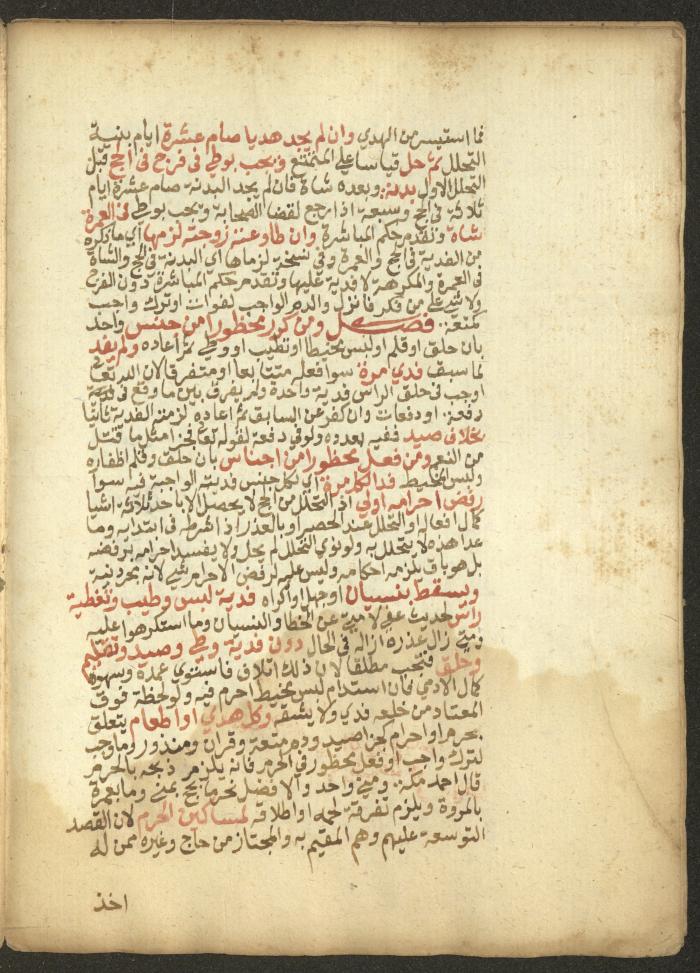 فما استيسر من الهدي وان لم يجد هديا صام عشرة ايام بنية
التحلل ثم حل قياسا على المتمتع ويجب بوطي في فرج في الحج قبل
التحلل الاول بدنة وبعده شاة فان لم يجد البدنة صام عشرة ايام
ثلاثة في الحج وسبعة اذا رجع لقضا الصحابة ويجب بوطي في العمرة
شاة وتقدم حكم المباشرة وان طاوعته زوجته لزمها اي ما ذكره
من الفدية في الحج والعمرة وفي نسخة لزماها اي البدنة في الحج والشاة
في العمرة والمكرهة لا فدية عليها وتقدم حكم المباشرة دون الفرج
ولا شي على من فكر فانزل والدم الواجب لفوات او ترك واجب
كمتعة فصل ومن كرر محظورا من جنس واحد
بان حلق او قلم او لبس مخيطا او تطيب او وطي ثم اعاده ولم يفد
لما سبق فدي مرة سوا فعله متتابعا او متفرقا لان الله تعالى
اوجب في حلق الراس فدية واحدة ولم يفرق بين ما وقع في دفعة
دفعة او دفعات وان كفر عن السابق ثم اعاده لزمته الفدية ثانيا
بخلاف صيد ففيه بعدده ولو في دفعة لقوله تعالى فجزا مثل ما قتل
من النعم ومن فعل محظورا من اجناس بان حلق وقلم اظفاره
ولبس المخيط فدا لكل مرة اي لكل جنس فديته الواجبة فيه سوا
رفض احرامه او لا اذ التحلل من الحج لا يحصل الا باحد ثلاثة اشيا
كمال افعاله او التحلل عند الحصر او بالعذر اذا شرطه في ابتدايه وما
عدا هذه لا يتحلل به ولو نوى التحلل لم يحل ولا يفسد احرامه برفضه
بل هو باق يلزمه احكامه وليس عليه لرفض الاحرام شي لانه مجرد نية
ويسقط بنسيان او جهل او اكراه فدية لبس وطيب وتغطية
راس لحديث عفي لامتي عن الخطا والنسيان وما استكرهوا عليه
ومتى زال عذره ازاله في الحال دون فدية وطي وصيد وتقليم
وحلق فتجب مطلقا لان ذلك اتلاف فاستوى عمده وسهوه
كمال الادمي فان استدام لبس مخيط احرم فيه ولو لحظة فوق
المعتاد من خلعه فدي ولا يشقه وكل هدي او اطعام يتعلق
بحرم او احرام كجزا صيد ودم متعة وقران ومنذور وما وجب
لترك واجب او فعل محظور في الحرم فانه يلزم ذبحه بالحرم
قال احمد مكة ومنى واحد والافضل نحر ما بحج بمنى وما بعمرة
بالمروة ويلزم تفرقة لحمه او اطلاقه لمساكين الحرم لان القصد
التوسعة عليهم وهم المقيم به والمجتاز من حاج وغيره ممن له
اخذ